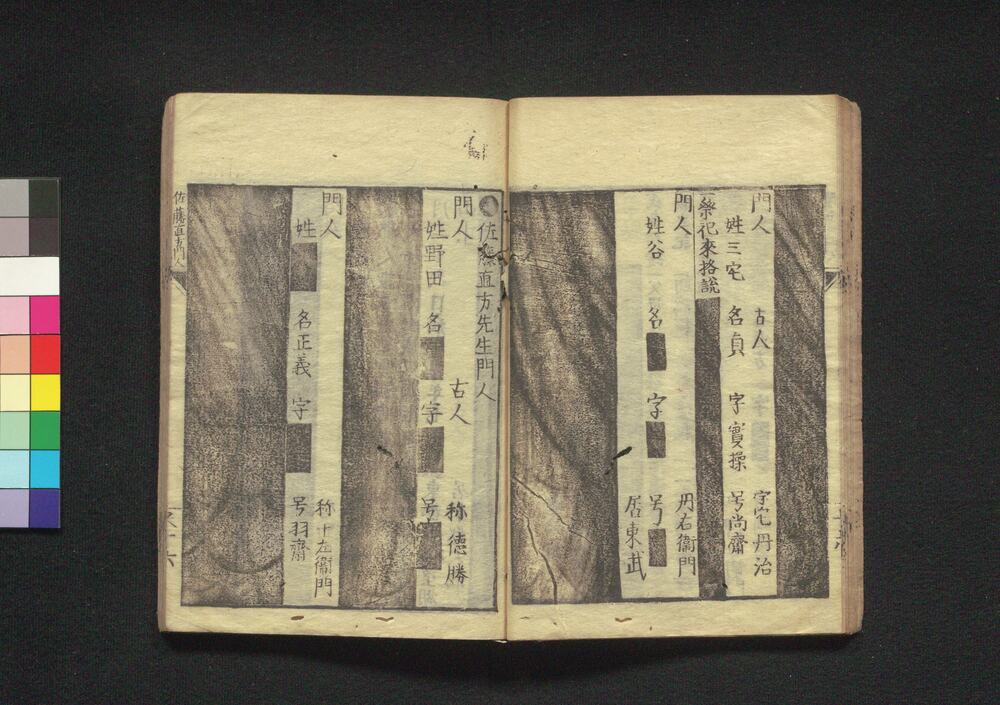 門人 古人 字宅丹治
姓三宅 名貞 字實操 号尚齋
祭祀來格說
門人 丹右衞門
姓谷 名 字 号
居東武
佐藤直方先生門人
門人 古人 称德勝
姓野田 名 字 号
門人 称十左衞門
姓 名正義 字 号羽齋
佐藤直方門人